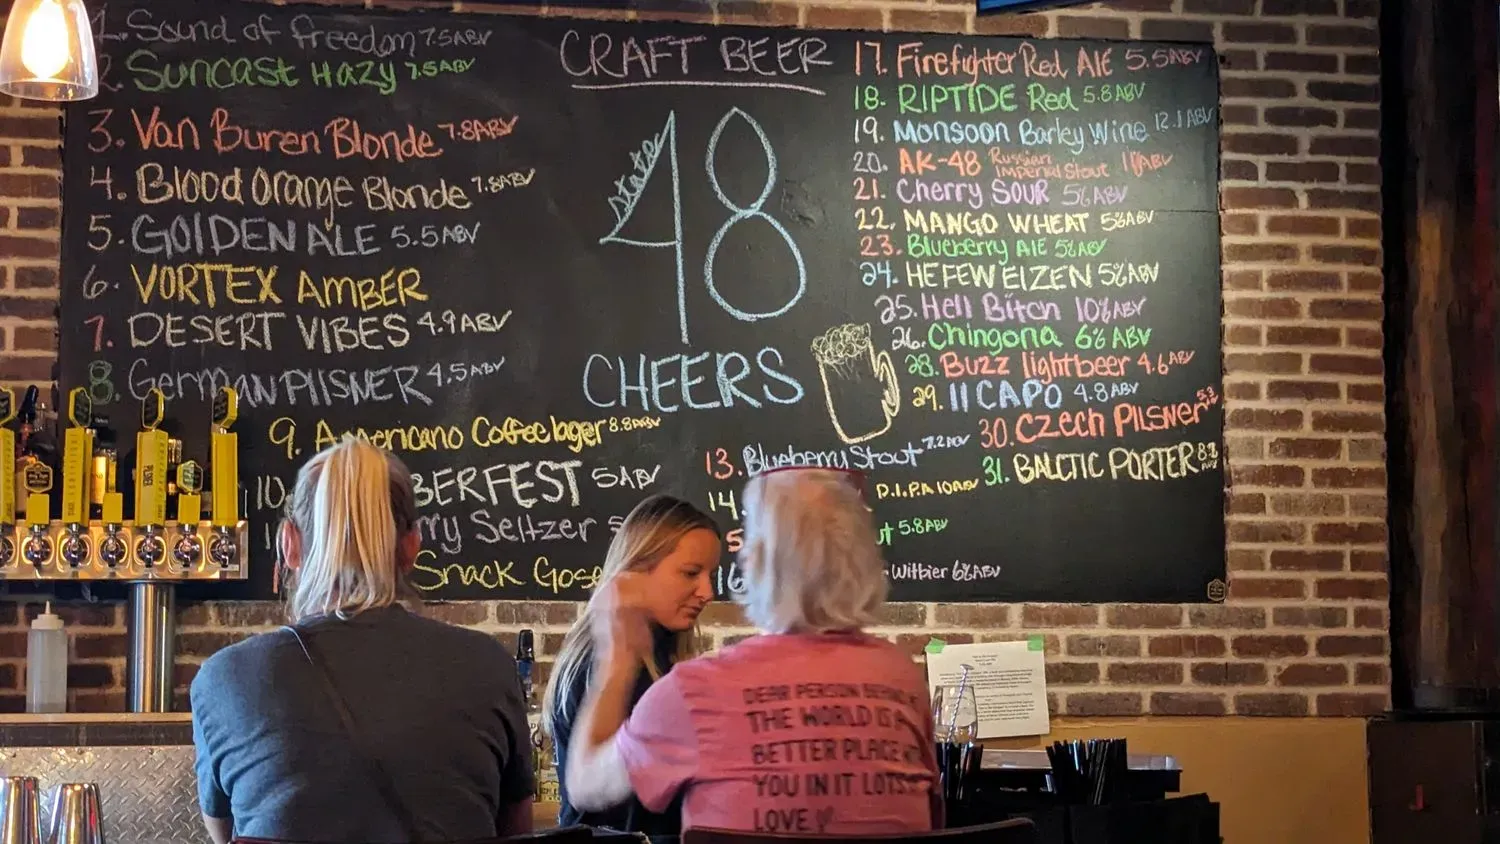 1. Sound of freedom 7.5ABV
2. Suncast Hazy 7.5ABV
3. Van Buren Blonde 7.8ABV
4. Blood Orange Blonde 7.8ABV
5. GOlDEN ALE 5.5ABV
6. VORTEX AMBER
7. DESERT VIBES 4.9ABV
8. German PIlSNER 4.5ABV
9. Americano Coffee lager 8.8ABV
10. BERFEST 5ABV
rry Seltzer
Snack Gose
CRAFT BEER
state
48
CHEERS
13. Blueberry Stout 7.2ABV
14. D.I.P.A 10ABV
5.8ABV
16 Witbier 6%ABV
17. Firefighter Red AlE 5.5ABV
18. RIPTIDE Red 5.8ABV
19. Monsoon Barley Wine 12.1ABV
20. AK-48 Russian Imperial Stout
21. Cherry SOUR 5%ABV
22. MANGO WHEAT 5%ABV
23. Blueberry AlE 5%ABV
24. HEFEWEIZEN 5%ABV
25. Hell Bitch 10%ABV
26. Chingona 6% ABV
28. Buzz lightbeer 4.6ABV
29. Il CAPO 4.8ABV
30. Czech PIlSNER 5.3
31. BAlCTIC PORTER
PILSNER
DEAR PERSON BEHIND
THE WORLD IS A
BETTER PLACE
YOU IN IT LOTS
LOVE